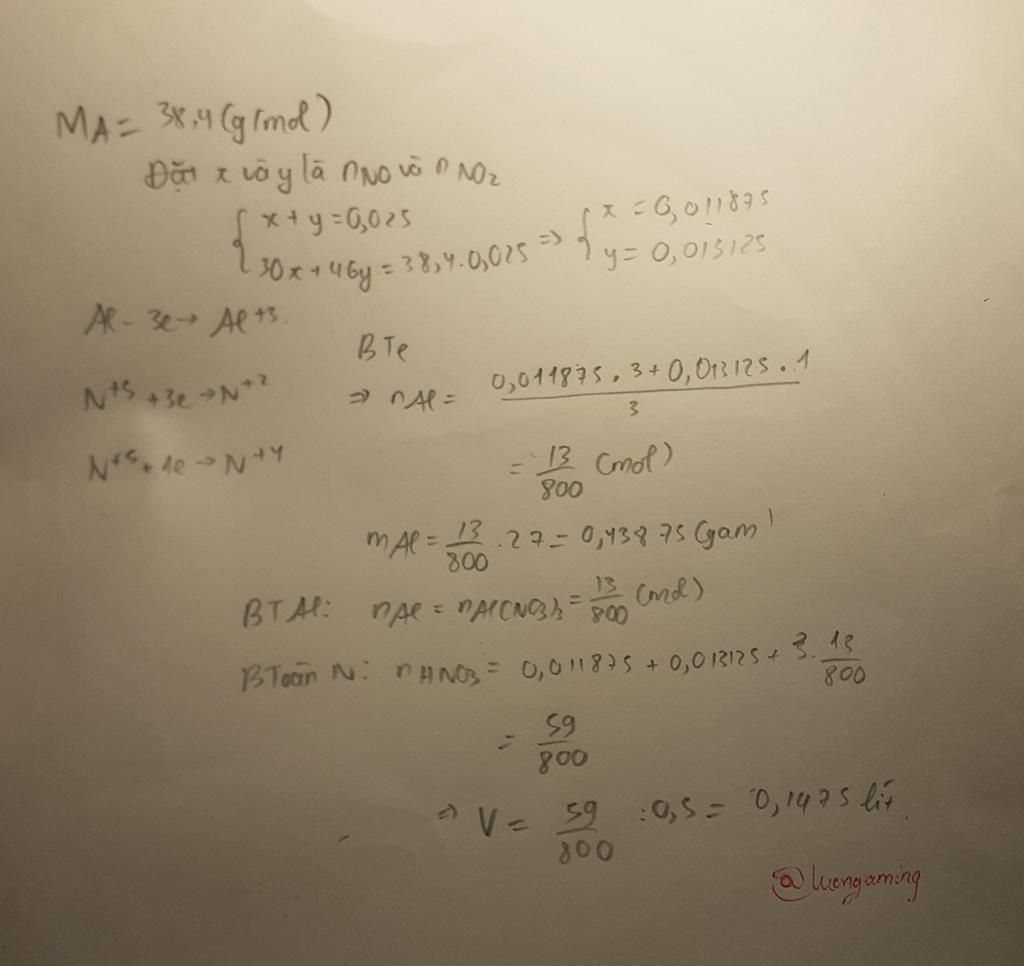 MA = 38,4 (g/mol)
Đặt x và y là nNO và nNO2
{ x + y = 0,025
30x + 46y = 38,4.0,025 => { x = 0,011875
y = 0,013125
Al - 3e → Al+3
BTe
N+5 + 3e → N+2 => nAl = (0,011875 . 3 + 0,013125 . 1) / 3
N+5 + 1e → N+4 = 13/800 (mol)
mAl = 13/800 . 27 = 0,43875 (gam)
BT Al: nAl = nAl(NO3)3 = 13/800 (mol)
BToàn N: nHNO3 = 0,011875 + 0,013125 + 3. 13/800
= 59/800
=> V = 59/800 : 0,5 = 0,1475 lít.
@luongaming